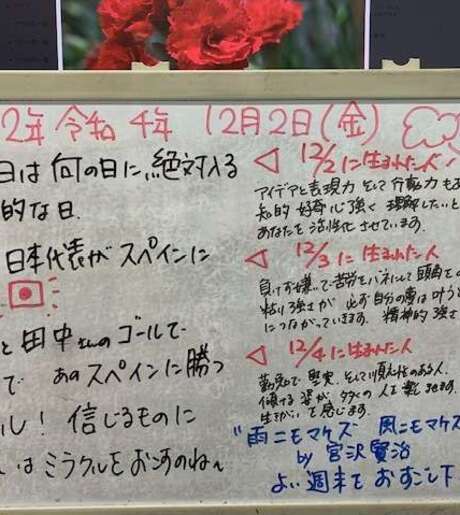 2年 令和 4年 12月2日(金)
日は 何の日に、絶対入る
的な日.
日本代表が スペインに
と 田中さんの ゴールで
で あの スペインに 勝つ
ル! 信じるものに
は ミラクルを おこすのねん
12/2 に生まれた人
アイデアと表現力 そして 行動力も
知的 好奇心強く 理解したいと
あなたを 活性化 させています.
12/3 に 生まれた人
負けず嫌いで 苦労をバネにして 頭角を
粘り強さが 必ず 自分の夢は叶う
につながっていきます. 精神的 強さ
12/4 に生まれた人
勤勉で 堅実、そして 順応性のある人.
傾ける 姿が 多くの 人を 惹
生きがいを 感じます.
"雨ニモマケズ 風ニモマケズ
by 宮沢賢治
よい 週末を おすごし下